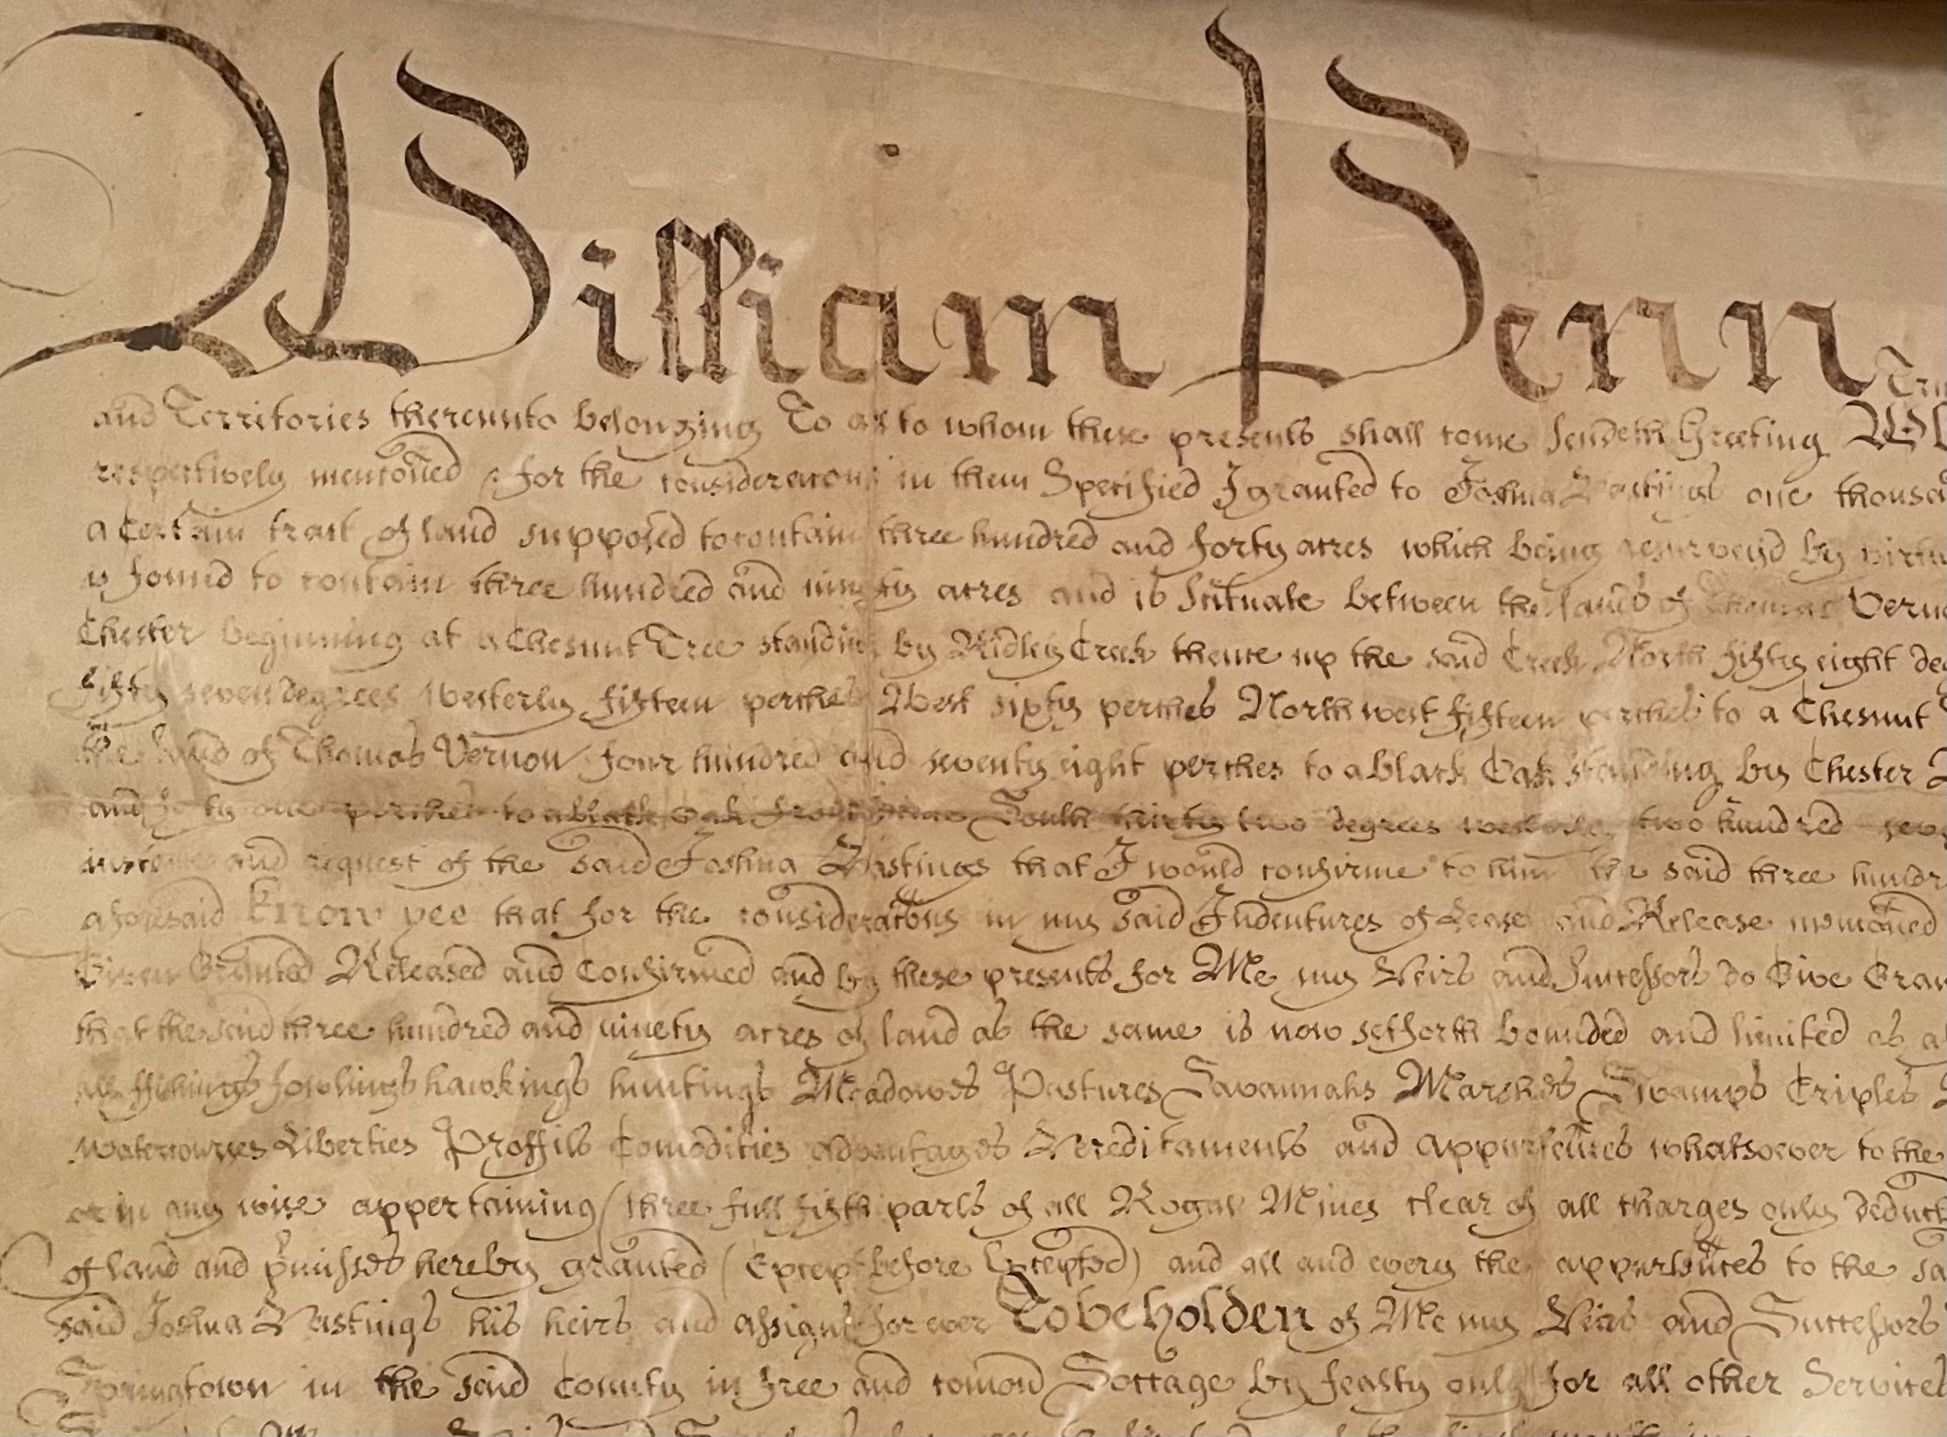 William Penn
and Territories thereunto belonging To all to whom these presents shall come Sendeth Greeting
respectively mentoned & for the consideracons in them Specified I granted to Joshua Hastings one
a Certain tract of land supposed to contain three hundred and forty acres which being resurveyd by
is found to contain three hundred and ninety acres and is Scituate between the lands of Thomas
Chester beginning at a Chesnut Tree standing by Ridley Creek thence up the said Creek North fifty eight
fifty seven degrees Westerly fifteen perches West sixty perches North west fifteen perches to a Chesnut
the land of Thomas Vernon four hundred and seventy eight perches to a black Oak standing by Chester
and forty one perches to a black oak South thirty two degrees two hundred
and request of the said Joshua Hastings that I would confirme to him the said three
aforesaid Know yee that for the consideratons in my said Indentures of Lease and Release mentoned
Given Granted Released and Confirmed and by these presents for Me my Heirs and Successors do Give
that the said three hundred and ninety acres of land as the same is now setforth bounded and limited as
all ffishings fowlings hawkings huntings Meadows Pastures Savannahs Marshes Swamps Criples
watercourses Liberties Proffits Comodities advantages Hereditaments and appurtences whatsoever to the
or in any wise appertaining (three full fifth parts of all Royal Mines clear of all charges only
of land and pmisses hereby granted (Except before Excepted) and all and every the appurtences to the
said Joshua Hastings his heirs and assigns for ever To be holden of Me my Heirs and Successors
Springtown in the said County in free and comon Soccage by fealty only for all other Services